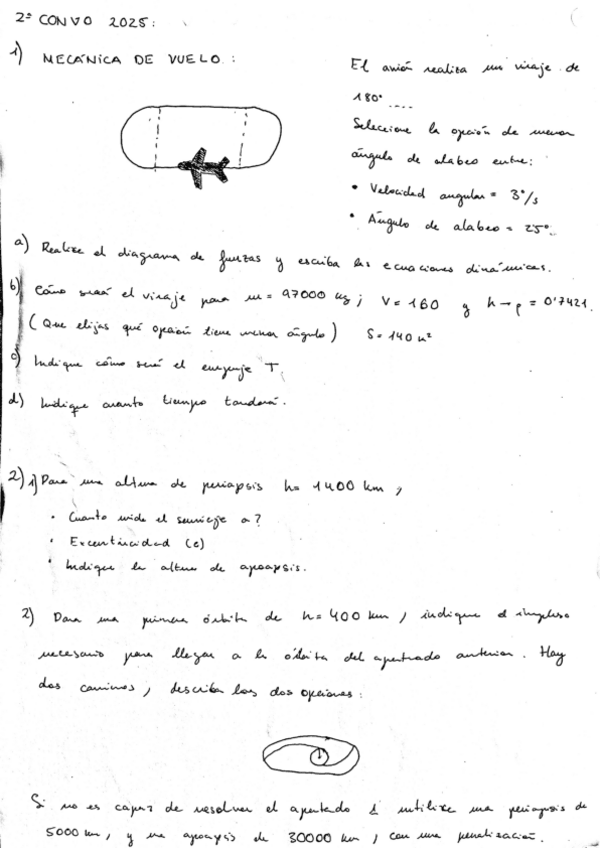 2ª CONVO 2025:
1) MECÁNICA DE VUELO:
El avión realiza un viraje de
180° ....
Seleccione la opción de menor
ángulo de alabeo entre:
• Velocidad angular = 3°/s
• Ángulo de alabeo = 25°.
a) Realize el diagrama de fuerzas y escriba las ecuaciones dinámicas.
b) Cómo será el viraje para m = 97000 kg; V = 160 y h → ρ = 0'7421.
(Que elijas qué opción tiene menor ángulo) S = 140 m²
c) Indique cómo será el empuje T.
d) Indique cuanto tiempo tardará.
2) 1) Para una altura de periapsis h = 1400 km,
• Cuanto mide el semieje a?
• Excentricidad (e)
• Indique la altura de apoapsis.
2) Para una primera órbita de h = 400 km, indique el impulso
necesario para llegar a la órbita del apartado anterior. Hay
dos caminos, describa las dos opciones:
Si no es capaz de resolver el apartado 1 utilize una periapsis de
5000 km, y una apoapsis de 30000 km, con una penalización.